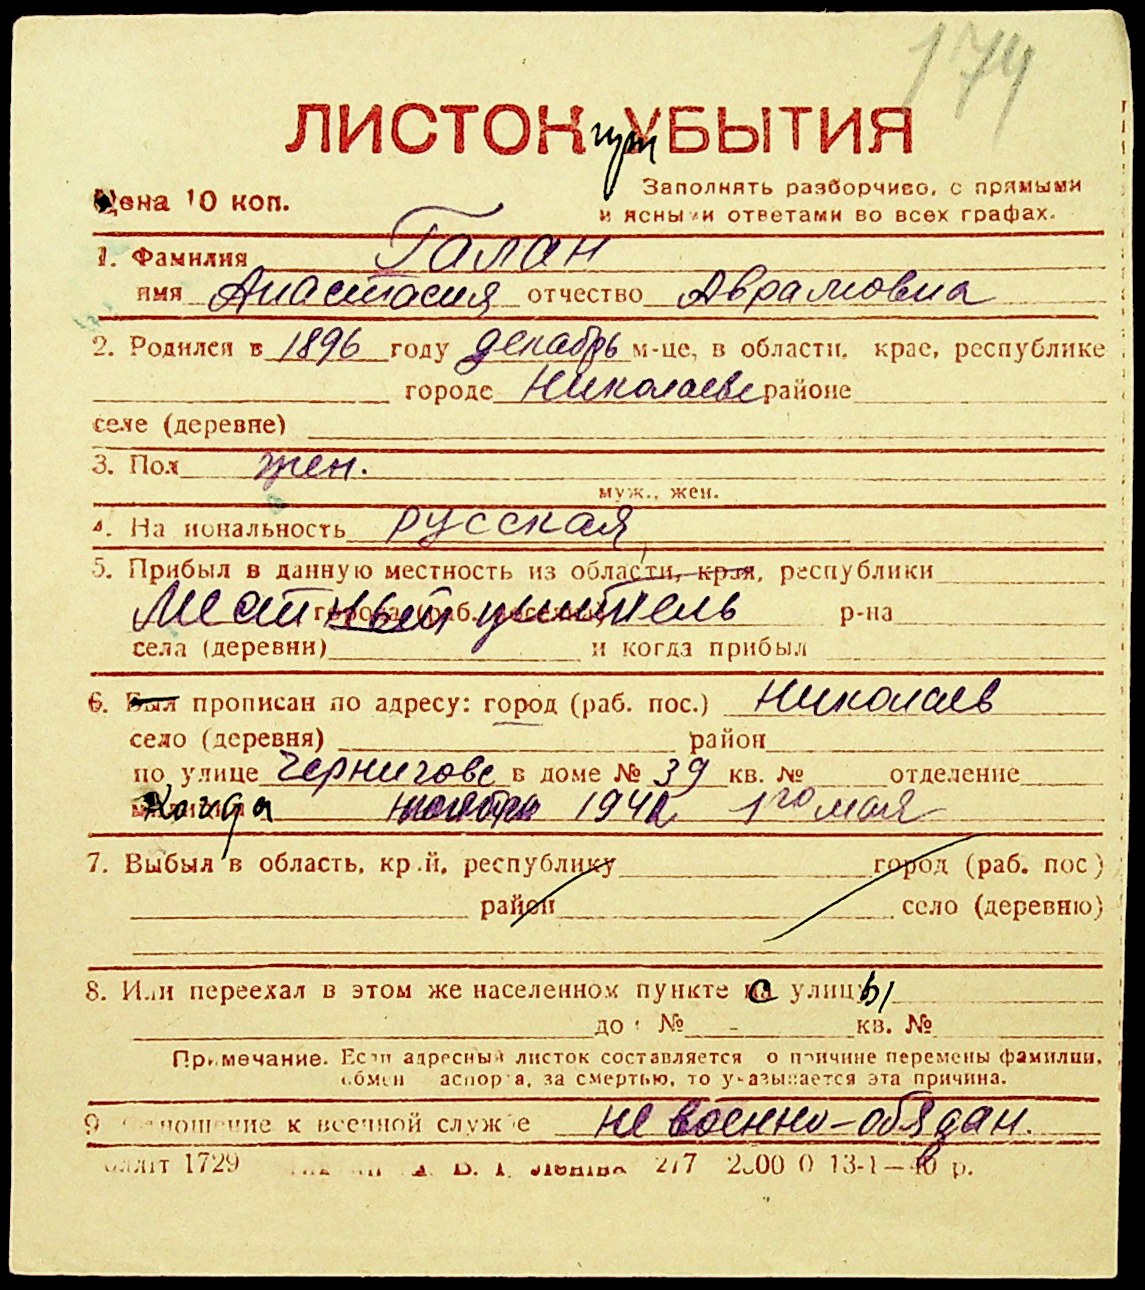 174
ЛИСТОК при УБЫТИЯ
Цена 10 коп.
Заполнять разборчиво, с прямыми
и ясными ответами во всех графах.
1. Фамилия Галан
имя Анастасия отчество Аврамовна
2. Родился в 1896 году декабрь м-це, в области, крае, республике
городе Николаеве районе
селе (деревне)
3. Пол жен.
муж., жен.
4. Национальность русская
5. Прибыл в данную местность из области, края, республики
Местный житель р-на
села (деревни) и когда прибыл
6. Был прописан по адресу: город (раб. пос.) Николаев
село (деревня) район
по улице Черниговс в доме № 39 кв. № отделение
Когда 1942 1го мая
7. Выбыл в область, край, республику город (раб. пос)
район село (деревню)
8. Или переехал в этом же населенном пункте с улицы
до № - кв. №
Примечание. Если адресный листок составляется по причине перемены фамилии,
обмен паспорта, за смертью, то указывается эта причина.
9 Отношение к военной службе не военно-обядан.
1729 В. І. Леніна 277 2000 0 13-1—40 р.